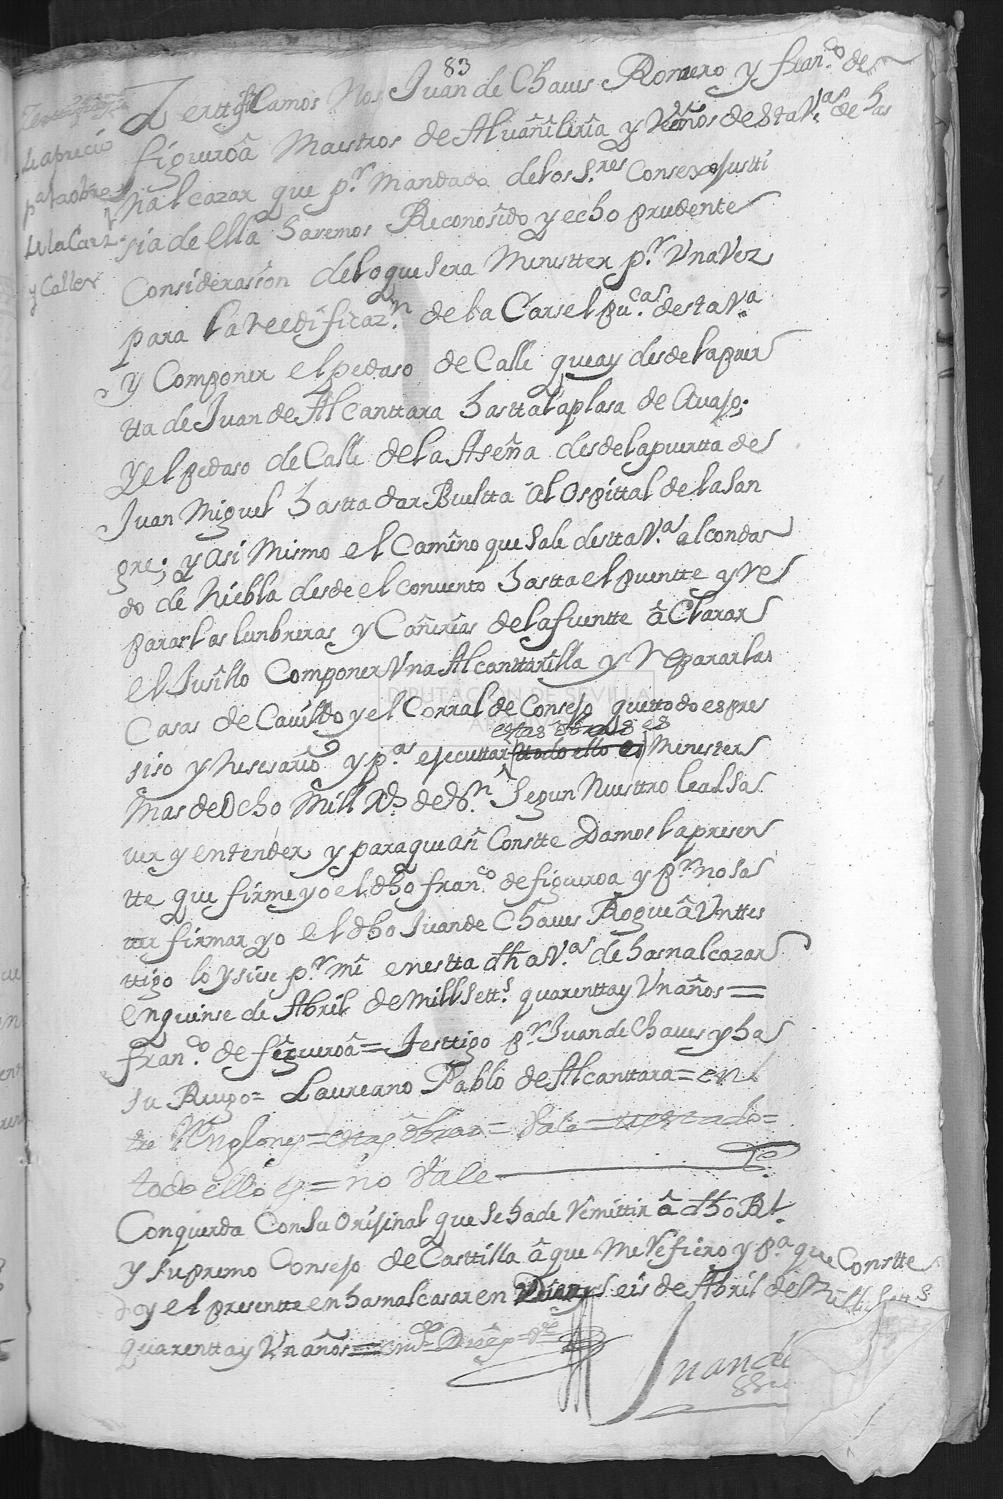 83
Zerttifícamos Nos Juan de Chaves Romero y Fran.co de
figueroâ Maestros de Alvañileria y Vecinos de esta V.a de has
nalcazar que p.r mandado de los S.res Consexo Justti
sia de ella havemos Reconosido y echo prudente
Considerasion de lo que sera Menestter p.r Una Vez
para la reedificaz.n de la Carsel pu.ca de esta V.a
y Componer el pedaso de Calle que ay desde la puer
tta de Juan de Alcanttara hastta la plasa de avajo;
y el pedaso de Calle de la Aseña desde la puertta de
Juan Miguel hastta dar Bueltta al Ospittal de la San
gre; y asi Mismo el Camino que sale destta V.a al conda
do de Niebla desde el convento hastta el puentte y Re
parar las lunbreras y Cañerias de la fuentte â Clarar
el Pusillo Componer Una Alcanttarilla y Reparar las
Casas de Cavildo y el Corral de Consejo que ttodo es pre
estas obras es
siso y nesesario y p.a ejecuttar ttodo ello es Menester
Mas de Ocho Mill R.s de v.n segun Nuesttro leal sa
ver y entender y para que asi Constte Damos la presen
tte que firme yo el dho fran.co de figueroa y p.r no sa
ver firmar yo el dho Juan de Chaves Rogue â Un ttes
ttigo lo ysiese p.r mi en estta dha V.a de hasnalcazar
en quinse de Abril de Mill Sett.s quarentta y Un años =
fran.co de figueroâ = Testtigo p.r Juan de Chaves y ha
su Ruego = Laureano Pablo de Alcanttara = en
tre Renglones = estas obras = Vale = testado =
todo ello es = no Vale
Conquerda Con su Orijinal que se ha de Remittir â dho R.l
y supremo Consejo de Casttilla â que me Refiero y p.a que Constte
doy el presentte en hasnalcasar en Dies y seis de Abril de Mill Sett.s
quarentta y Un años = en.do Dies = V.e
Juan de
le aprecio
p.a la obra
de la Carz.l
y Calles
DIPUTACION DE SEVILLA